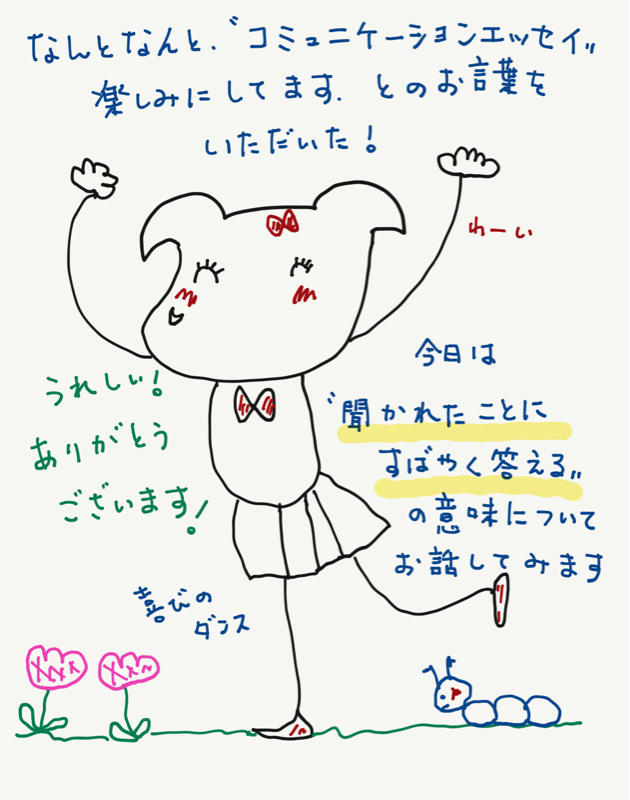 なんとなんと、〝コミュニケーションエッセイ〟
楽しみにしてます、とのお言葉を
いただいた!
わーい
うれしい!
ありがとう
ございます!
今日は
〝聞かれたことに
すばやく答える〟
の意味について
お話してみます
喜びの
ダンス